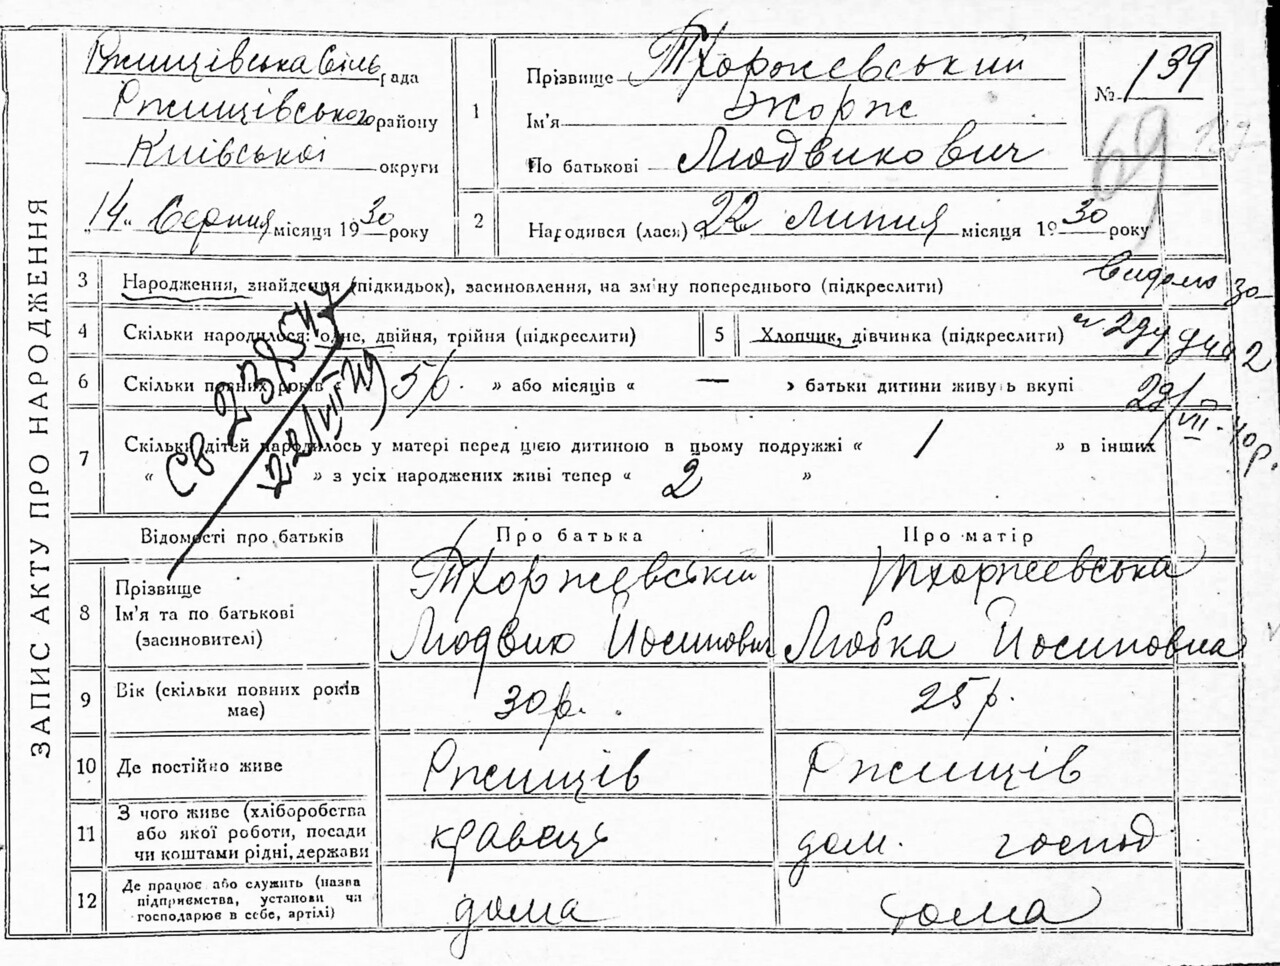 ЗАПИС АКТУ ПРО НАРОДЖЕННЯ
Ржищівська Сіль рада
Ржищівського району
Київської округи
14 " Серпня місяця 1930 року
1
Прізвище Тхоржевський
Ім'я Жорж
По батькові Людвикович
№ 139
69
2
Народився (лася) 22 липня місяця 1930 року
3 Народження, знайдення (підкидьок), засиновлення, на зміну попереднього (підкреслити)
4 Скільки народилося: одне, двійня, трійня (підкреслити)
5 Хлопчик, дівчинка (підкреслити)
6 Скільки повних років « 5 р. » або місяців « — » батьки дитини живуть вкупі
7 Скільки дітей народилось у матері перед цією дитиною в цьому подружжі « 1 » в інших
« » з усіх народжених живі тепер « 2 »
Відомості про батьків Про батька Про матір
8 Прізвище
Ім'я та по батькові
(засиновителі)
Тхоржевський
Людвик Йосипович
Тхоржевська
Любка Йосиповна
9 Вік (скільки повних років має) 30 р. 25 р.
10 Де постійно живе Ржищів Ржищів
11 З чого живе (хліборобства
або якої роботи, посади
чи коштами рідні, держави
кравець дом. господ
12 Де працює або служить (назва
підприємства, установи чи
господарює в себе, артілі)
дома дома
св
22/VII
29/VII-40р.